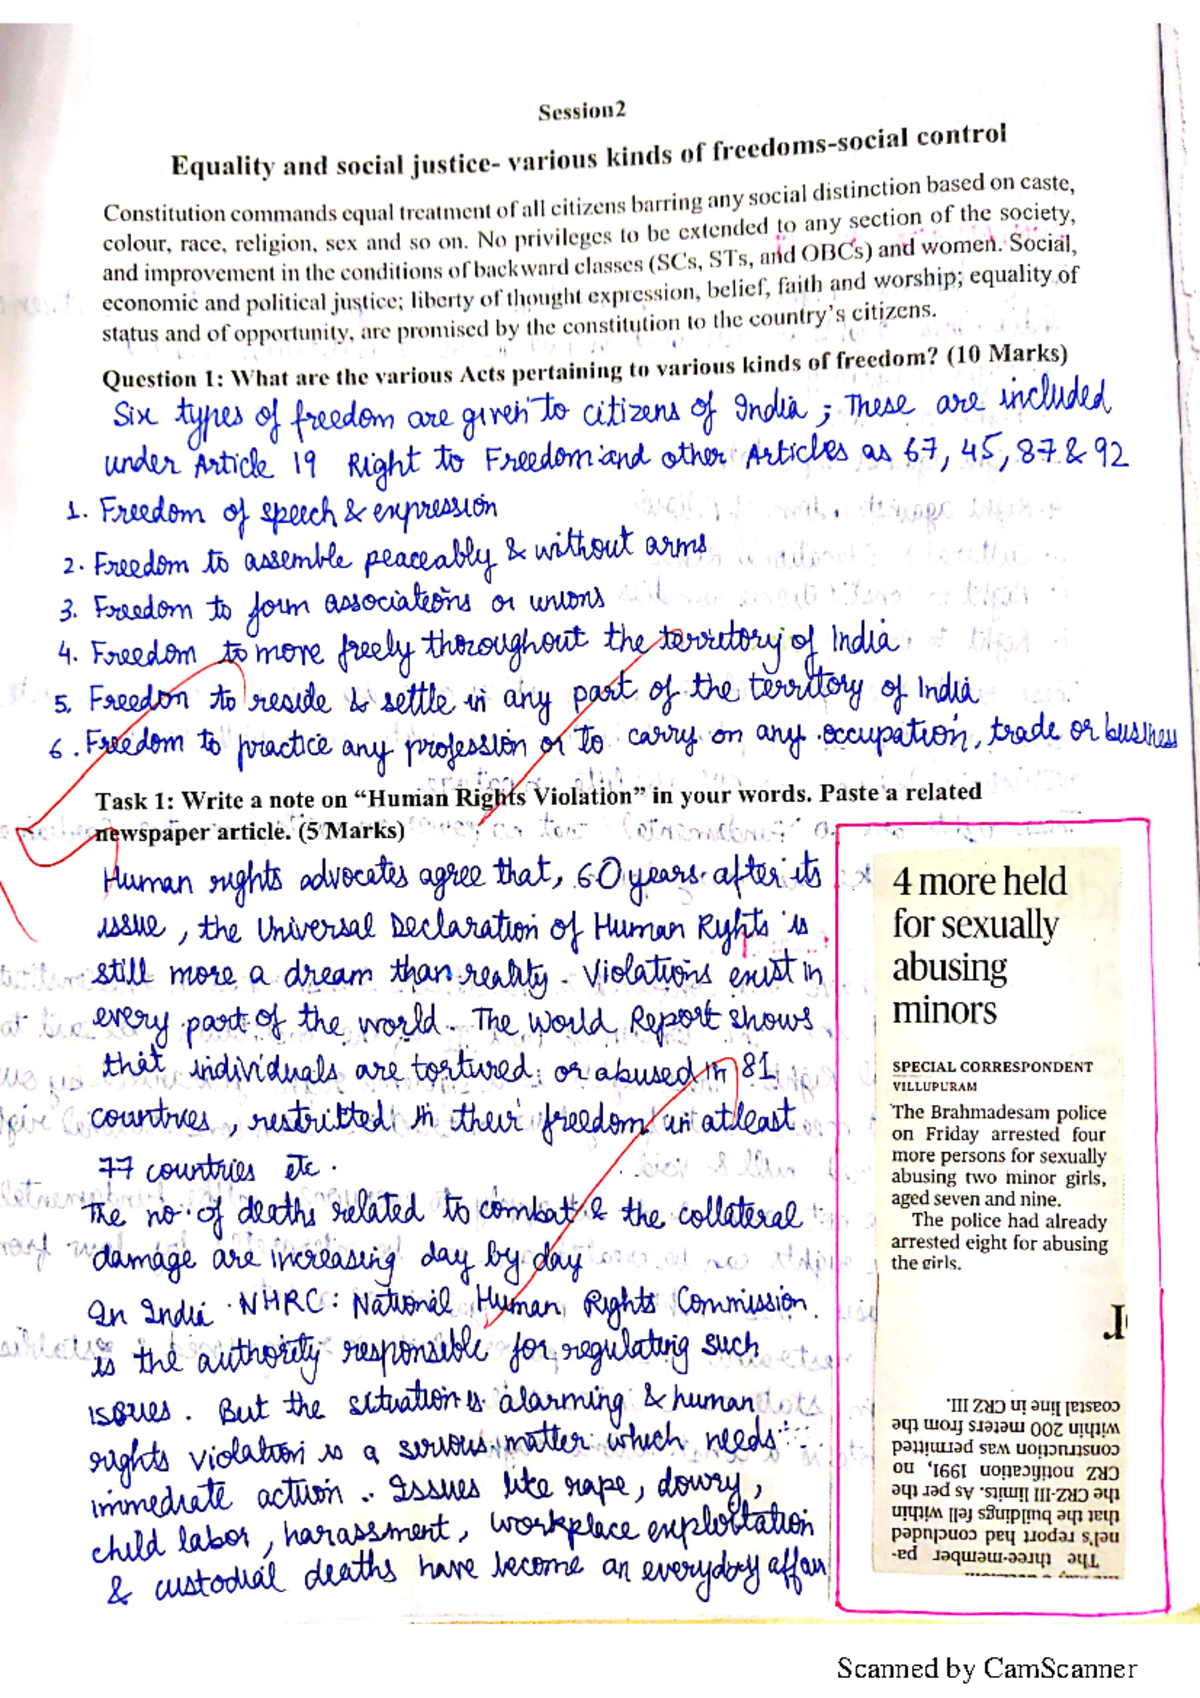 Session2
Equality and social justice- various kinds of freedoms-social control
Constitution commands equal treatment of all citizens barring any social distinction based on caste,
colour, race, religion, sex and so on. No privileges to be extended to any section of the society,
and improvement in the conditions of backward classes (SCs, STs, and OBCs) and women. Social,
economic and political justice; liberty of thought expression, belief, faith and worship; equality of
status and of opportunity, are promised by the constitution to the country's citizens.
Question 1: What are the various Acts pertaining to various kinds of freedom? (10 Marks)
Six types of freedom are given to citizens of India; These are included
under Article 19 Right to Freedom and other Articles as 67, 45, 87 & 92
1. Freedom of speech & expression
2. Freedom to assemble peaceably & without arms
3. Freedom to form associations or unions
4. Freedom to move freely thoroughout the territory of India
5. Freedom to reside & settle in any part of the territory of India
6. Freedom to practice any profession or to carry on any occupation, trade or business
Task 1: Write a note on “Human Rights Violation” in your words. Paste a related
newspaper article. (5 Marks)
Human rights advocates agree that, 60 years after its
issue, the Universal Declaration of Human Rights is
still more a dream than reality. Violations exist in
every part of the world. The World Report shows
that individuals are tortured or abused in 81
countries, restricted in their freedom in atleast
77 countries etc.
The no. of deaths related to combat & the collateral
damage are increasing day by day
In India NHRC: National Human Rights Commission
is the authority responsible for regulating such
issues. But the situation is alarming & human
rights violation is a serious matter which needs
immediate action. Issues like rape, dowry,
child labor, harassment, workplace exploitation
& custodial deaths have become an everyday affair
4 more held
for sexually
abusing
minors
SPECIAL CORRESPONDENT
VILLUPURAM
The Brahmadesam police
on Friday arrested four
more persons for sexually
abusing two minor girls,
aged seven and nine.
The police had already
arrested eight for abusing
the girls.
The three-member pa-
nel's report had concluded
that the buildings fell within
the CRZ-III limits. As per the
CRZ notification 1991, no
construction was permitted
within 200 meters from the
coastal line in CRZ III.
Scanned by CamScanner